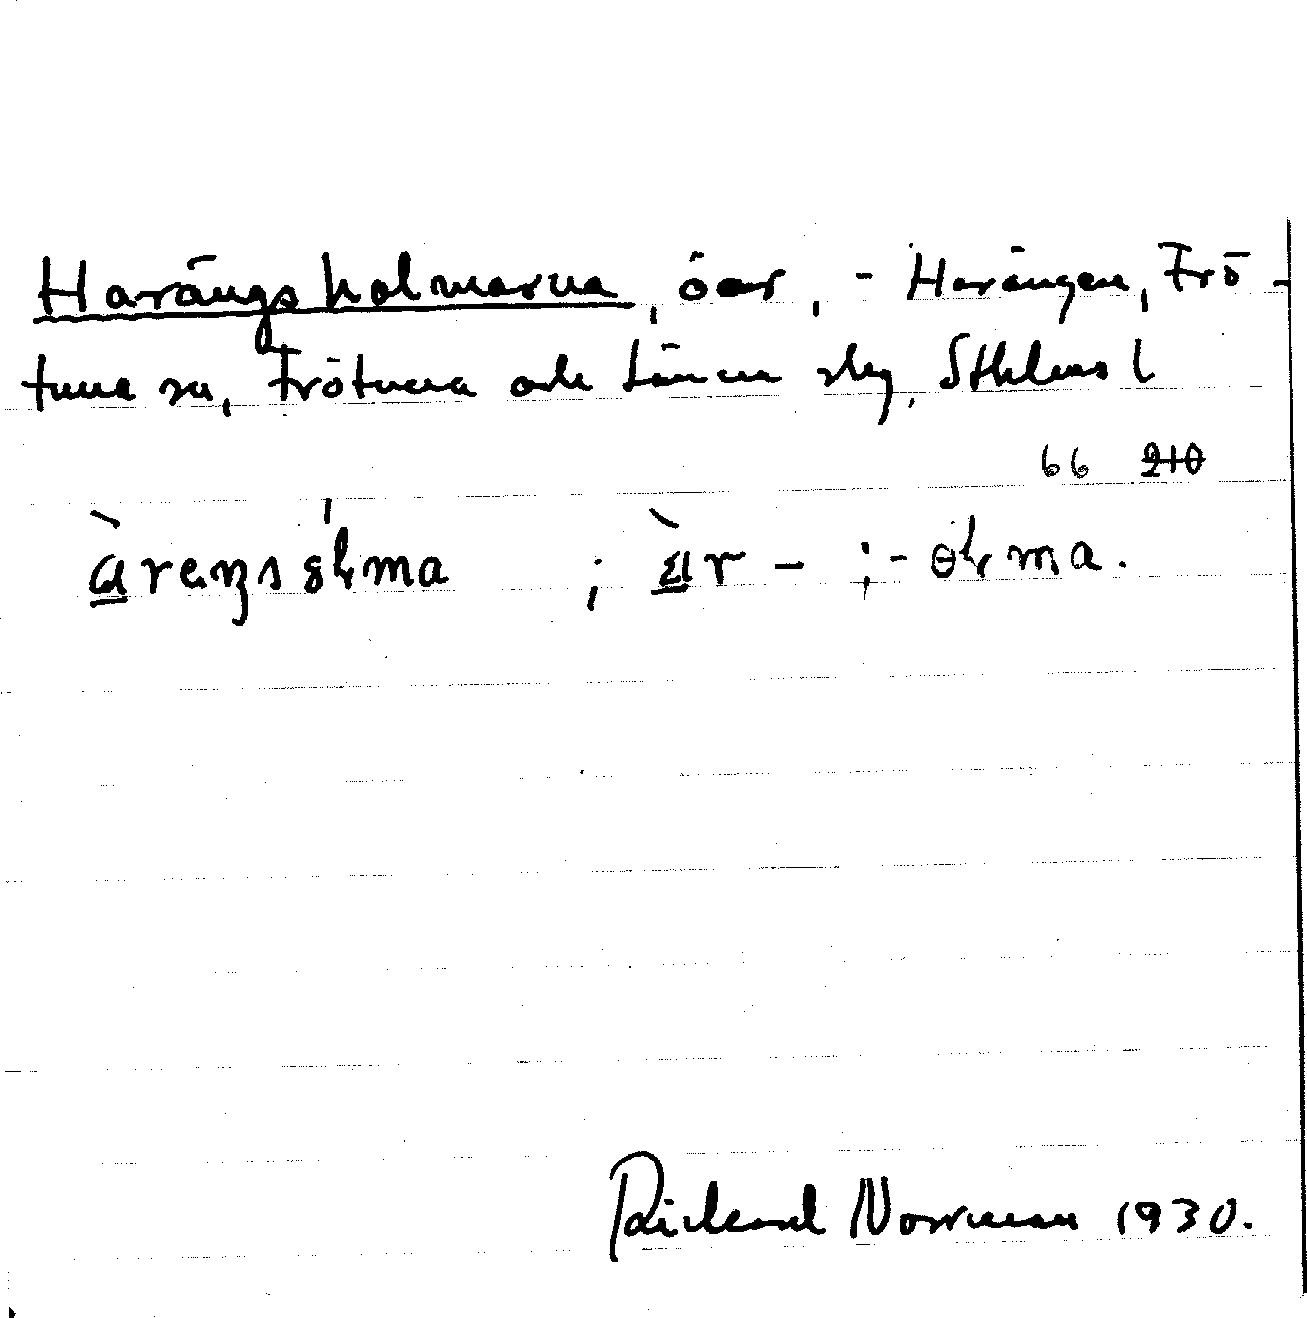 Harängsholmarna, öar, - Harängen, Frö-
tuna sn, Frötuna och Länna slg, Sthlms l
66 210
; - 
Rickard Norrman 1930.